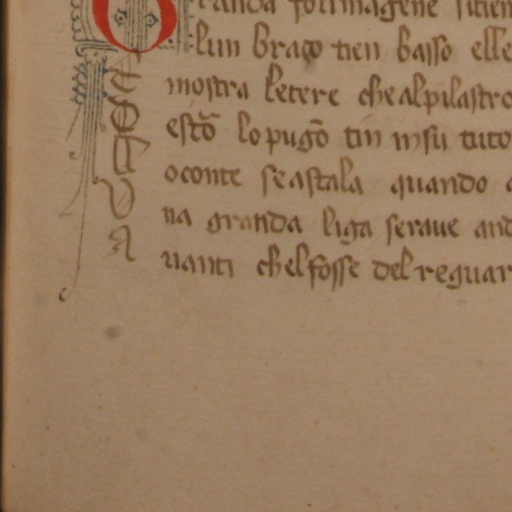 randa sorimagene sitien
lun braço tien basso elle
mostra letere che alpilastro
estō lo pugō tin insu tuto
o conte se astala quando
na granda liga seraue and
uanti chelfosse del reguar